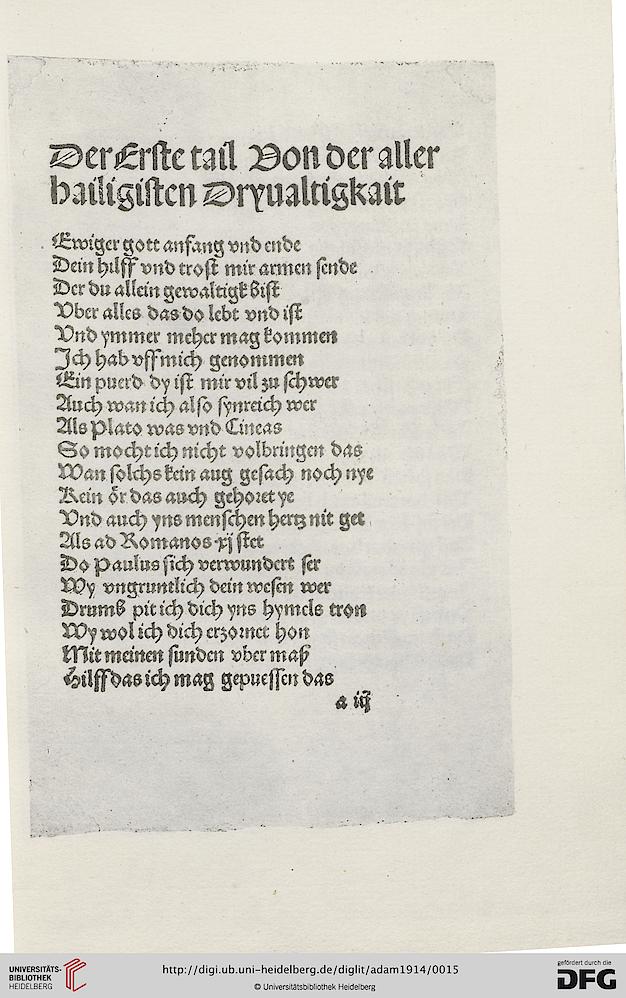 Der Erste tail Von der aller
hailigisten Dryualtigkait
Ewiger gott anfang vnd ende
Dein hilff vnd trost mir armen sende
Der du allein gewaltigk bist
Vber alles das do lebt vnd ist
Vnd ymmer meher mag kommen
Jch hab vff mich genommen
Ein puerd dy ist mir vil zu schwer
Auch wan ich also synreich wer
Als Plato was vnd Cineas
So mocht ich nicht volbringen das
Wan solchs kein aug gesach noch nye
Kein ör das auch gehoret ye
Vnd auch yns menschen hertz nit get
Als ad Romanos xj stet
Do Paulus sich verwundert ser
Wy vngruntlich dein wesen wer
Drumb pit ich dich yns hymels tron
Wy wol ich dich erzornet hon
Mit meinen sunden vber maß
Hilff das ich mag gepuessen das
a iij
UNIVERSITÄTS-
BIBLIOTHEK
HEIDELBERG
http://digi.ub.uni-heidelberg.de/diglit/adam1914/0015
© Universitätsbibliothek Heidelberg
gefördert durch die
DFG